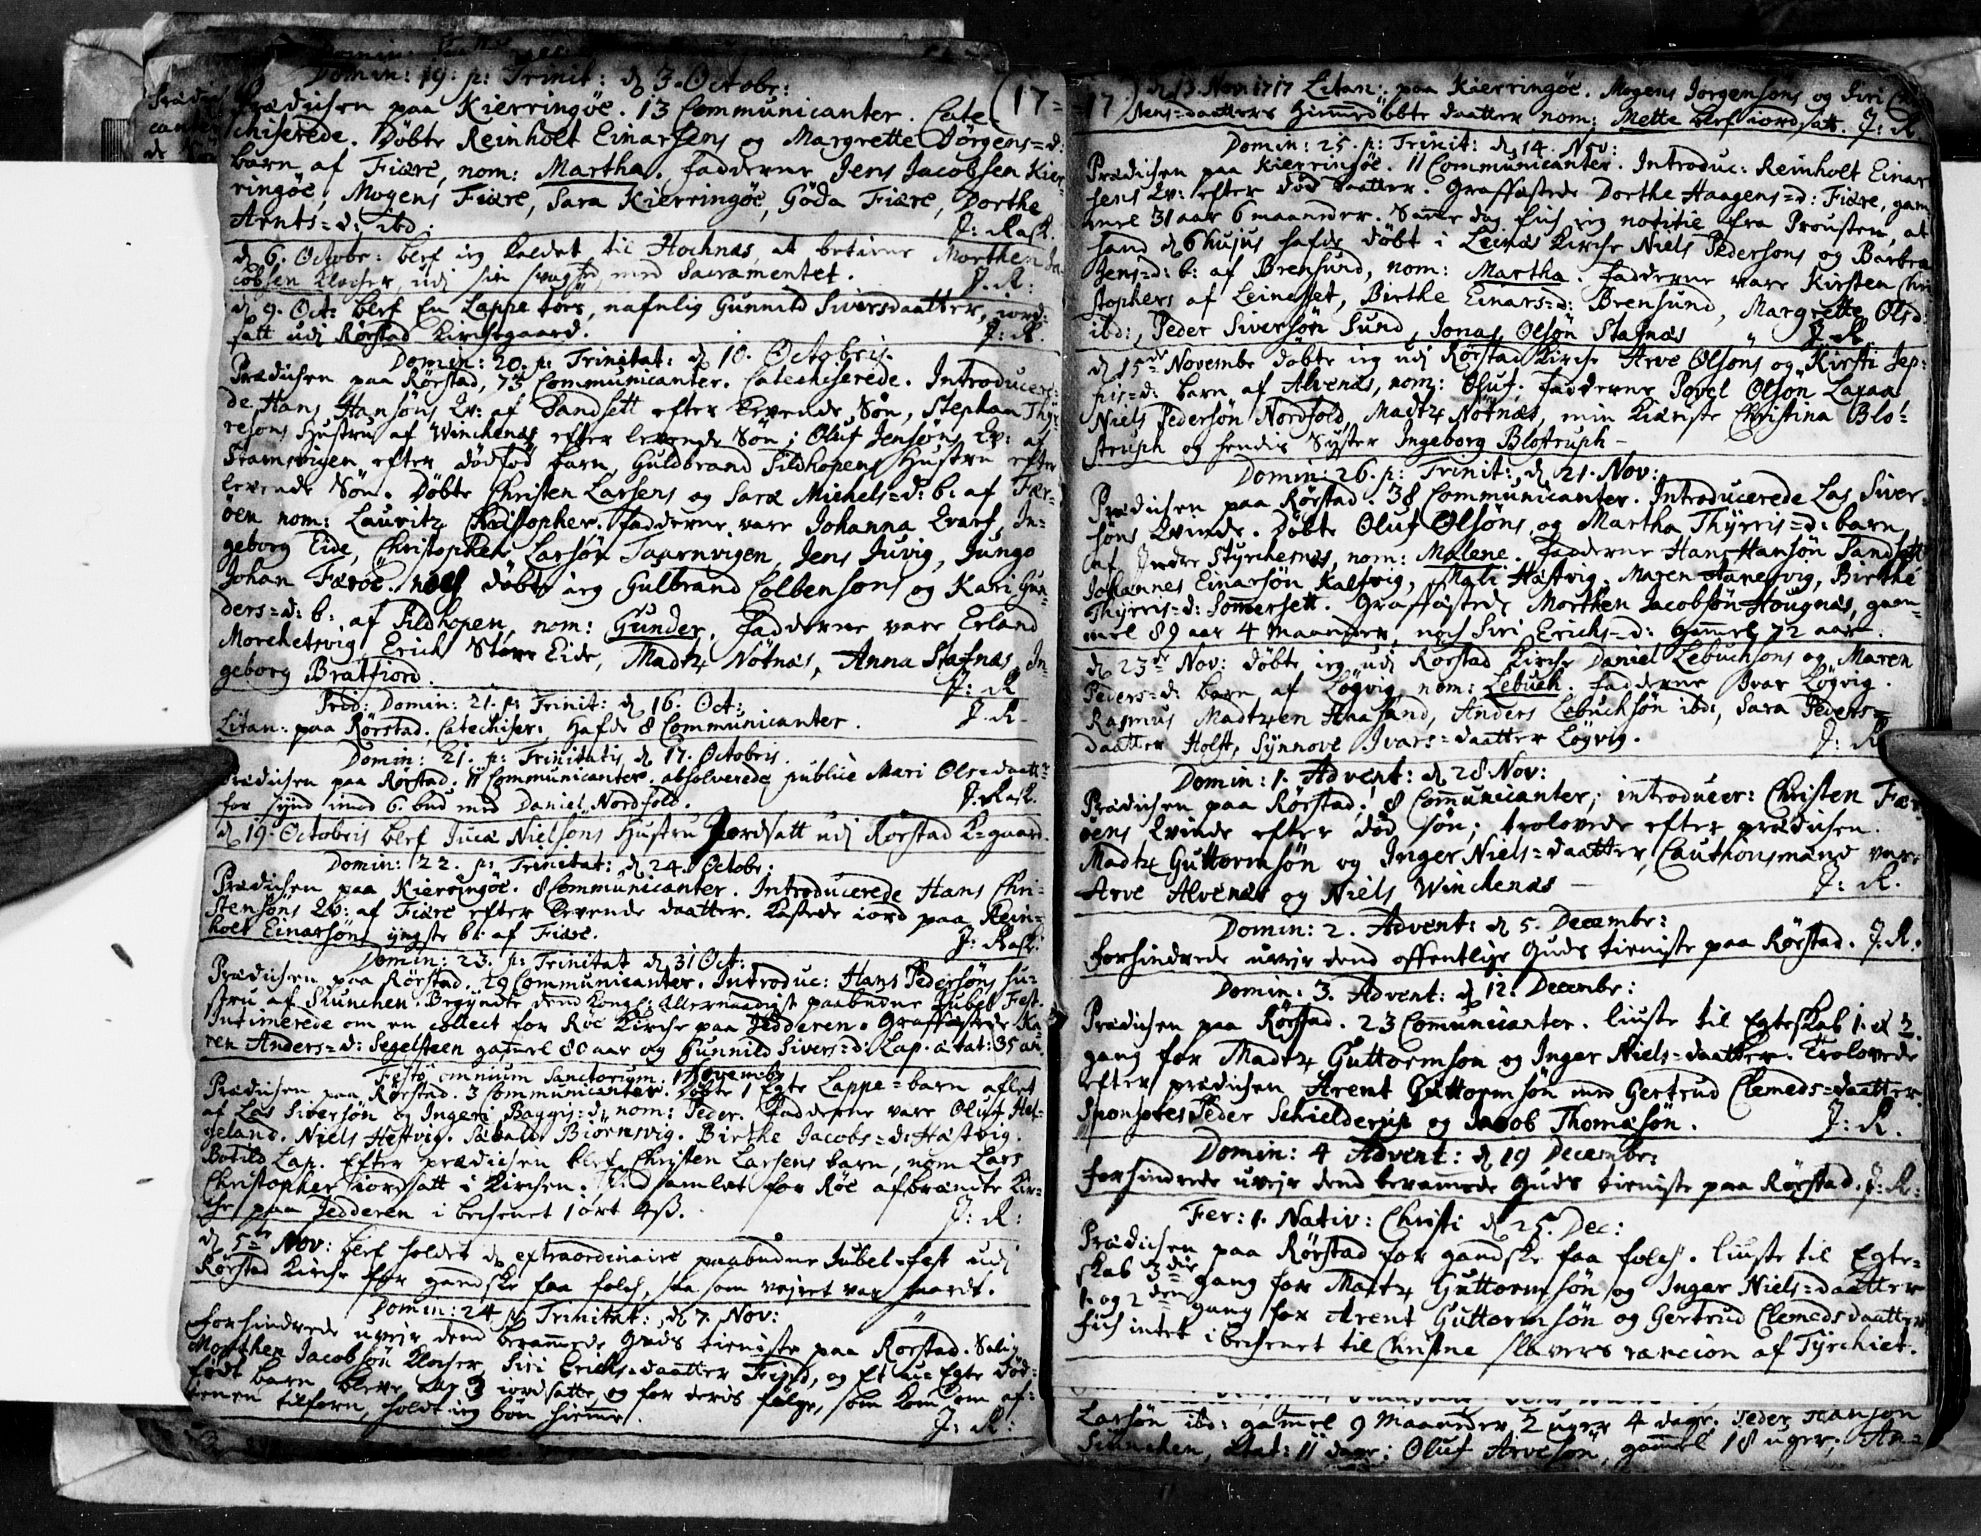 Domin: 19. p: Trinit: d. 3. Octobr:
Prædichen paa Kierringøe. 13 Communicanter. Cate-
chiserede. Døbte Reinholt Einarsens og Margrette Jörgens=d:
barn af Fiære, nom: Martha. Fadderne Jens Jacobsen Kier-
ringöe, Mogens Fiære, Sara Kierringöe, Göda Fiære, Dorthe
Arnts=d: ibd: J: Rask.
d. 6. Octobr: blef ieg kaldet til Hochnæs, at betiene Morthen Ja-
cobsen Klocher, udi sin svaghed med Sacramentet. J. R:
d. 9. Oct: blef En Lappe tøes, nafnlig Gunnild Siversdaatter, iord-
satt udi Rörstad Kirchegaard. J: R.
Domin: 20. p: Trinitat: d. 10. Octobris.
Prædichen paa Rörstad, 75 Communicanter. Catechiserede. Introducere-
de Hans Hansöns Qv: af Sandsett efter levende Sön, Stephan Thy-
resöns Hustru af Winchenæs efter levende Sön; Oluf Jensöns Qv: af
Stamsvigen efter dödfød barn, Guldbrand Sildhopens Hustru efter
levende Sön. Døbte Christen Larsens og Sara Michels=d: b: af Fær-
öen nom: Lauritz Christopher. Fadderne vare Johanna Evarf, In-
geborg Eide, Christopher Larsön Taarnvigen, Jens Juvig, Jungo
Johan Færöe. noch döbte ieg Gulbrand Colbensons og Kari Gun-
ders=d: b: af Sildhopen, nom: Gunder. Fadderne vare Erland
Morchetsvig, Erich Större Eide, Madtz Nötnæs, Anna Stafnæs, In-
geborg Bratfiord. J: R
Prid: Domin: 21. p: Trinit: d. 16. Oct:
Litan: paa Rörstad. Catechiser: Hafde 8 Communicanter. J. R.
Domin: 21. p: Trinitatis d. 17. Octobris.
Prædichen paa Rörstad. 11 Communicanter. absolverede publice Mari Ols=daatter
for synd imod 6. bud med Daniel Nordfold. J. Rask.
d. 19. Octobris blef Juca Nielsöns Hustru Jordsatt udi Rörstad K=gaard.
Domin: 22. p: Trinitat: d. 24. Octobr:
Prædichen paa Kierringöe. 8 Communicanter. Introducerede Hans Chri-
stensöns Qv: af Fiære efter levende daatter. Kastede iord paa Rein-
holt Einarsöns yngste b: af Fiære. J: Rask.
Domin: 23. p: Trinitat d. 31 Oct:
Prædichen paa Rörstad. 29 Communicanter. Introduc: Hans Pedersöns hu-
stru af Siunchen. Begyndte dend Kongl: allernaadigst paabudne Jubel Fest.
Intimerede om en collect for Röe Kirche paa Jedderen. Graffæstede Ka-
ren Anders=d: Segelsteen gamel 80 aar og Gunnild Sivers=d: Lap. ætat: 35 aar.
Festo omnium Sanctorum. 1 Novembr
Prædichen paa Rörstad. 3 Communicanter. Døbte 1 Egte Lappe=barn aflet
af Las Siversön og Ingeri Baggis=d: nom: Peder. Fadderne vare Oluf Hel-
geland. Niels Hestvig. Sæbald Biörnsvig. Birthe Jacobs=d: Hæstvig.
Botild Lap. Efter prædichen blef Christen Larsens barn, nom Lars
Christopher iordsatt i Kirchen. Indsamlet for Röe afbrændte Kir-
che paa Jedderen i bechenet 1 ort 4 ß. J: R:
d. 5te Nov: blef holdet d. extraordinaire paabudne Jubel=fest udi
Rörstad Kirche for gandske faa folch, saasom vejret var haardt.
Domin: 24 p: Trinitat: d. 7. Nov:
Forhindrede uvejr dend berammede Guds tieniste paa Rörstad. Salig
Morthen Jacobsön Klocher, Siri Erichs=daatter Fiord, og Et u=Egte död-
födt barn bleve alle 3 iordsatte, og for deris fölge, som kom om af-
tenen tilforn, holdt ieg bön hiemme. J: R:
(17=
=17) d. 13. Nov: 1717 Litan: paa Kierringöe. Mogens Jörgensöns og Siri Chri-
stens=daatters hiemedöbte daatter nom: Mette blef iordsatt. J: R.
Domin: 25. p: Trinit: d. 14. Nov:
Prædichen paa Kierringöe. 11 Communicanter. Introduc: Reinholt Einar-
sens Qv: efter död daatter. Graffæstede Dorthe Haagens=d: Fiære, gam-
mel 31 aar 6 maaneder. Same dag fich ieg notitie fra Prousten, at
hand d. 6 hujus hafde döbt i Leinæs Kirche Niels Pedersöns og Barbra
Jens=d: b: af Brensund, nom: Martha. Fadderne vare Kirsten Chri-
stophers af Leineset, Birthe Einars=d: Brensund, Margrette Ols=d:
ibd:, Peder Siversön Sund, Jonas Olsön Stafnæs J: R.
d. 15de Novembr döbte ieg udi Rörstad Kirche Arve Olsöns og Kirsti Jep-
pis=d: barn af Alvenæs, nom: Oluf. Fadderne Povel Olsön Laxaa
Niels Pedersön Nordfold, Madtz Nötnæs, min Kiæriste Christina Blo-
struph og hendis Syster Ingeborg Blostruph –
Domin: 26. p: Trinit: d. 21. Nov:
Prædichen paa Rörstad. 38 Communicanter. Introducerede Las Siver-
söns Qvinde. Döbte Oluf Olsöns og Martha Thyrris=d: barn
af Indre Styrchesnæs, nom: Malene. Fadderne Hans Hansön Sandsett
Johannes Einarsön Kaltvig, Mali Hæstvig, Maren Hanesvig, Birthe
Thyrris=d: Sommersett. Graffæstede Morthen Jacobsön Hougnæs, gam-
mel 89 aar 4 maaneder, noch Siri Erichs=d: gammel 72 aar.
d. 23de Nov: döbte ieg udi Rörstad Kirche Daniel Lebuchsöns og Maren
Peders=d: barn af Lögvig nom: Lebuch. Fadderne Ivar Lögvig.
Rasmus Madtzen Anasand, Anders Lebuchsön ibd:, Sara Peders=
daatter Holst, Synnove Ivars=daatter Lögvig. J: R
Domin: 1. Advent: d. 28 Nov:
Prædichen paa Rörstad. 8 Communicanter; introducer: Christen Fær-
öens Qvinde efter död sön; trolovede efter prædichen.
Madtz Guttormsön og Inger Niels=daatter, Cautionsmænd vare
Arve Alvenæs og Niels Winchenæs – J: R.
Domin: 2. Advent: d. 5. Decembr:
Forhindrede uvejr dend offentlige Guds tieniste paa Rörstad. J. R.
Domin: 3. Advent: d. 12. Decembr:
Prædichen paa Rörstad. 23 Communicanter. liuste til Egteskab 1. et 2.
gang for Madtz Guttormsön og Inger Niels=daatter. Trolovede
efter prædichen Arent Guttormsön med Gertrud Clemeds=daatter.
Sponsores Peder Schielderup og Jacob Thomæsön. J: R.
Domin: 4 Advent: d. 19 Decembr:
Forhindrede uvejr dend berammede Guds tieniste paa Rörstad. J: R:
Fer: 1. Nativ: Christi d. 25. Dec:
Prædichen paa Rörstad for gandske faa folch. liuste til Egte-
skab 3die gang for Madtz Guttormsön og Inger Niels=daatter
1. og 2den gang for Arent Guttormsön og Gertrud Clemedsdaatter
fich intet i bechenet til Christne slavers rancion af Tyrchiet.
Larsön ibd: gammel 9 Maaneder 2 uger 4 dage. Peder Hansön
Siunchen, ætat: 11 dage: Oluf Arvesön, gammel 18 uger; An-